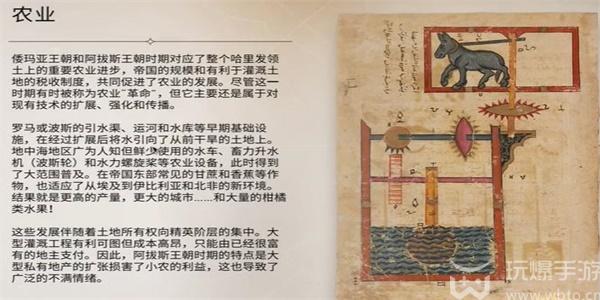 农业
倭玛亚王朝和阿拔斯王朝时期对应了整个哈里发领
土上的重要农业进步，帝国的规模和有利于灌溉土
地的税收制度，共同促进了农业的发展。尽管这一
时期有时被称为农业“革命”，但它主要还是属于对
现有技术的扩展、强化和传播。
罗马或波斯的引水渠、运河和水库等早期基础设
施，在经过扩展后将水引向了从前干旱的土地上。
地中海地区广为人知但鲜少使用的水车、畜力升水
机（波斯轮）和水力螺旋桨等农业设备，此时得到
了大范围普及。在帝国东部常见的甘蔗和香蕉等作
物，也适应了从埃及到伊比利亚和北非的新环境。
结果就是更高的产量，更大的城市……和大量的柑橘
类水果！
这些发展伴随着土地所有权向精英阶层的集中。大
型灌溉工程有利可图但成本高昂，只能由已经很富
有的地主支付。因此，阿拔斯王朝时期的特点是大
型私有地产的扩张损害了小农的利益，这也导致了
广泛的不满情绪。
玩爆手游
www.wbto.cn